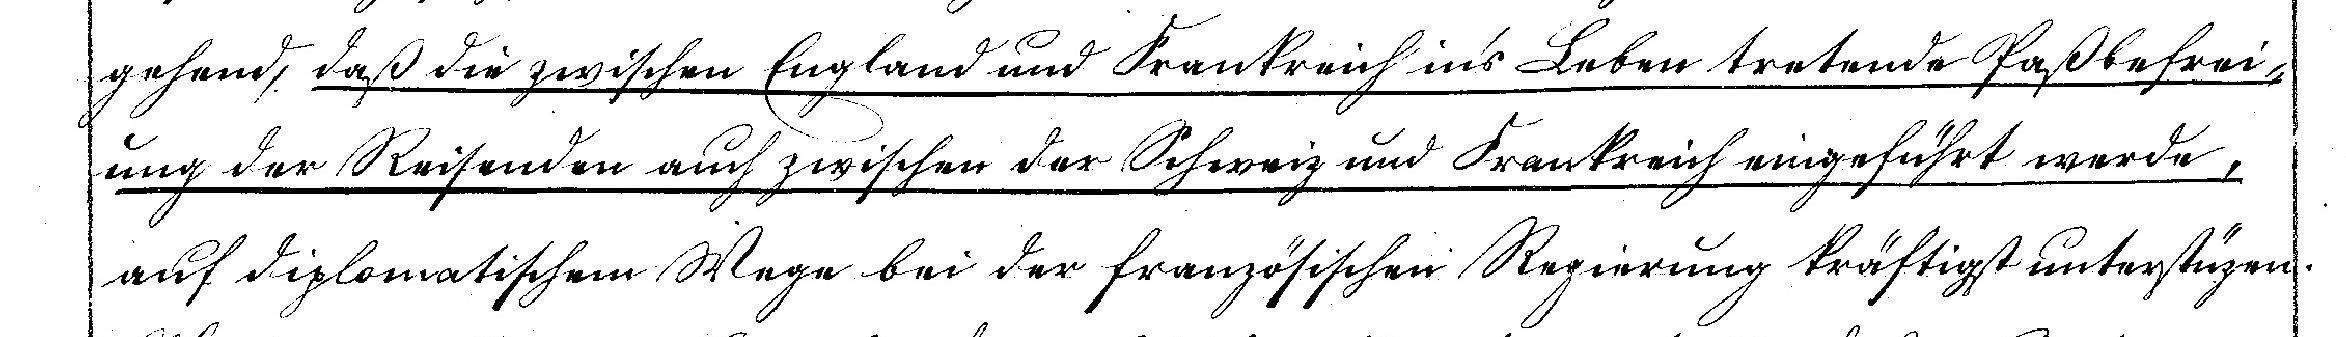 gehend, daß die zwischen England und Frankreich in's Leben tretende Paßbefrei-
ung der Reisenden auch zwischen der Schweiz und Frankreich eingeführt werde,
auf diplomatischem Wege bei der französischen Regierung kräftigst unterstüzen.